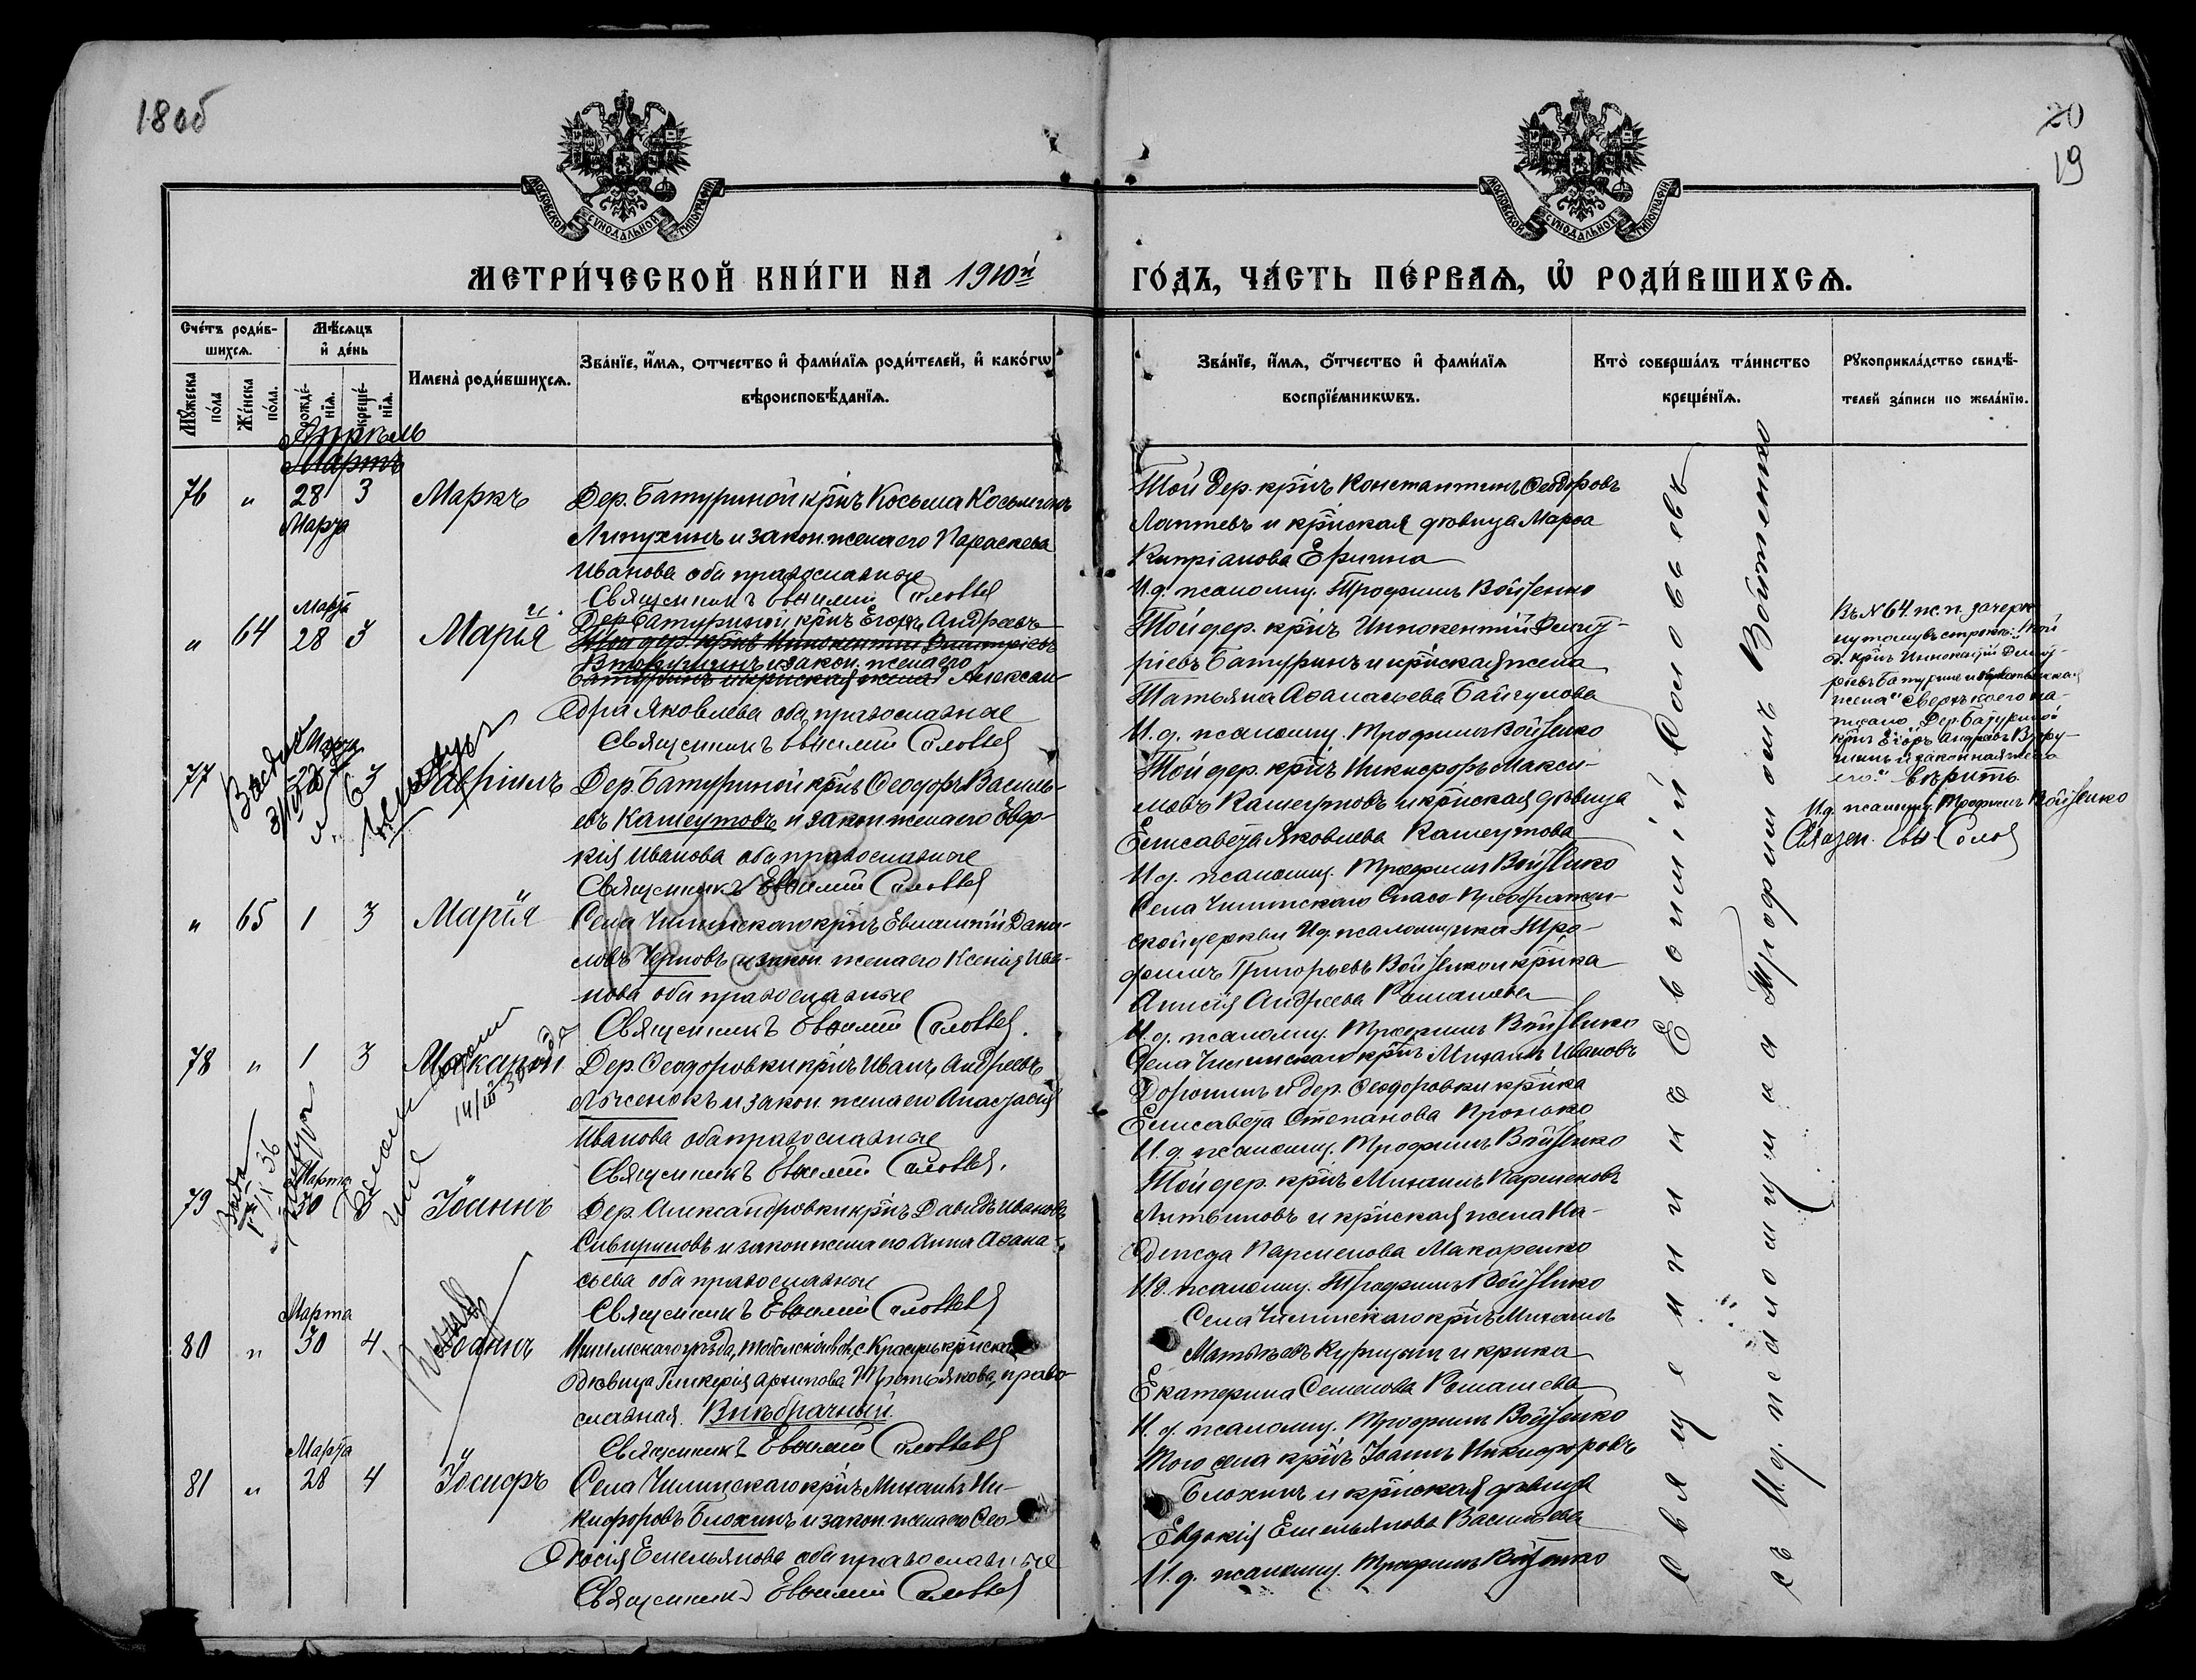 18об
20
19
МОСКОВСКОЙ СѴНОДАЛЬНОЙ ТИПОГРАФІИ
МОСКОВСКОЙ СѴНОДАЛЬНОЙ ТИПОГРАФІИ
МЕТРИ́ЧЕСКОЙ КНИ́ГИ НА 1910й
ГО́ДЪ, ЧА́СТЬ ПЕ́РВАѦ, Ѿ РОДИ́ВШИХСѦ.
Сче́тъ роди́в-
шихсѧ.
Мꙋ́жеска по́ла
Же́нска по́ла.
Мѣ́сѧцъ
и҆ де́нь
рожде́-нїѧ.
креще́-нїѧ.
Имена̀ роди́вшихсѧ.
Зва́нїе, и҆́мѧ, ѻтчество и҆ фами́лїѧ роди́телей, и҆ како́гѡ
вѣроисповѣ́данїѧ.
Зва́нїе, и҆́мѧ, ѻ҆́тчество и҆ фами́лїѧ
воспрїе́мникѡвъ.
Кто̀ соверша́лъ та́инство
креще́нїѧ.
Рꙋкоприкла́дство свидѣ́-
телей за́писи по жела́нїю.
Апрѣль
Мартъ
76 " 28 3 Маркъ
Марта
Дер. Батуриной кр̃нъ Косьма Косьминъ
Липухинъ и закон. жена его Параскева
Иванова оба православные
Священникъ Евѳимій Соловьев
Той дер. кр̃нъ Константинъ Ѳеодоровъ
Лаптевъ и кр̃нская дѣвица Марѳа
Кипріанова Ерина
И.д. псаломщ. Трофимъ Войтенко
Марта
" 64 28 3 Марія
Дер. Батуриной, кр̃нъ Егоръ Андреевъ
Той дер. кр̃нъ Иннокентій Димитріевъ
Вторушинъ и закон. жена его
Батуринъ и кр̃нская жена Алексан-
дра Яковлева оба православные
Священникъ Евѳимій Соловьев
Той дер. кр̃нъ Иннокентій Димит-
ріевъ Батуринъ и кр̃нская жена
Татьяна Аѳанасьева Байгулова
И.д. псаломщ. Трофимъ Войтенко
Въ № 64 ж.п. зачерк-
нутому въ строкѣ: "Той
д. кр̃нъ Иннокентій Димит-
ріевъ Батуринъ и кр̃нская
жена" сверхъ коего на-
писано "Дер. Батуриной
кр̃нъ Егоръ Андреевъ Втору-
шинъ и законная жена
его." вѣрить.
И.д. псаломщ. Трофимъ Войтенко
Священ. Евѳ. Солов
77 " 3 Гавріилъ
Дер. Батуриной кр̃нъ Ѳеодоръ Василь-
евъ Кашеутовъ и закон жена его Евдо-
кія Иванова оба православные
Священникъ Евѳимій Соловьев
Той дер. кр̃нъ Никифоръ Макси-
мовъ Кашеутовъ и кр̃нская дѣвица
Елисавета Яковлева Кашеутова
И.д. псаломщ. Трофимъ Войтенко
" 65 1 3 Марія
Села Чилинскаго кр̃нъ Евлампій Дани-
ловъ Черновъ и закон. жена его Ксенія Ива-
нова оба православные
Священникъ Евѳимій Соловьев.
Села Чилинскаго Спасо-Преображен-
ской церкви И.д. псаломщика Тро-
фимъ Григорьевъ Войтенко и кр̃нка
Анисія Андреева Ромашева
И.д. псаломщ. Трофимъ Войтенко
78 " 1 3 Макарій
14/III 38
Дер. Ѳеодоровки кр̃нъ Иванъ Андреевъ
Лученокъ и закон. жена его Анастасія
Иванова оба православные
Священникъ Евѳимій Соловьев.
Села Чилинскаго кр̃нъ Михаилъ Ивановъ
Доронинъ и дер. Ѳеодоровки кр̃нка
Елисавета Степанова Пронько
И.д. псаломщ. Трофимъ Войтенко
Марта
79 30 3 Іоаннъ
Дер. Александровки кр̃нъ Давидъ Ивановъ
Сивириновъ и закон жена его Анна Аѳана-
сьева оба православные
Священникъ Евѳимій Соловьев
Той дер. кр̃нъ Михаилъ Парменовъ
Литвиновъ и кр̃нская жена На-
дежда Парменова Макаренко
И.д. псаломщ. Трофимъ Войтенко
Марта
80 " 30 4 Іоаннъ
Ишимскаго уѣзда, Тобольской губ., с. кр̃нская
дѣвица Гликерія Архипова Третьякова, право-
славная. Внѣбрачный.
Священникъ Евѳимій Соловьев
Села Чилинскаго кр̃нъ Михаилъ
Матвѣевъ Курицынъ и кр̃нка
Екатерина Семенова Ромашева
И.д. псаломщ. Трофимъ Войтенко
Марта
81 " 28 4 Іосифъ
Села Чилинскаго кр̃нъ Михаилъ Ни-
кифоровъ Блохинъ и закон. жена его Ѳео-
досія Емельянова оба православные
Священникъ Евѳимій Соловьев
Того села кр̃нъ Іоаннъ Никифоровъ
Блохинъ и кр̃нская дѣвица
Евдокія Емельянова Васильева
И.д. псаломщ. Трофимъ Войтенко
Священникъ Евѳимій Соловьевъ
съ И.д. псаломщика Трофимомъ Войтенко